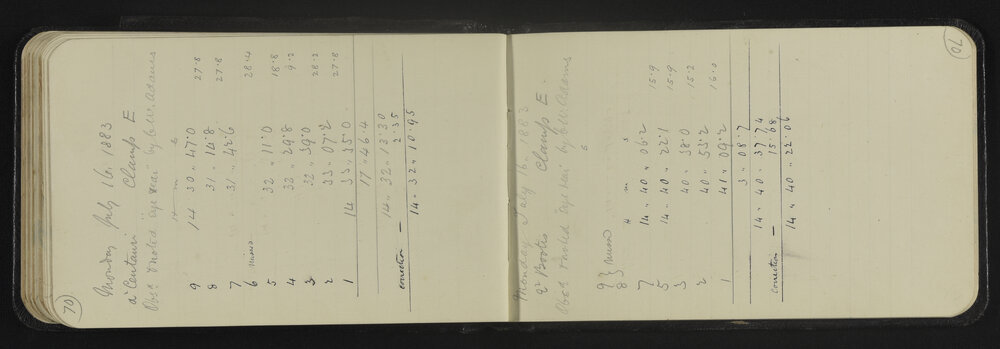 70
Monday July 16. 1883
α² Centauri Clamp E
Obsd & noted eye & ear by C.W. Adams
h m s
9 14 30 " 47.0 27.8
8 31 " 14.8 27.8
7 31 " 42.6
6 missed 28.4
5 32 " 11.0 18.8
4 32 " 29.8 9.2
3 32 " 39.0 28.2
2 33 " 07.2 27.8
1 14 33 " 35.0
17 " 46.4
14 " 32 " 13.30
Correction — 2.35
14 " 32 " 10.95
70
Monday July 16. 1883
Bootis Clamp E.
Obsd & noted eye & ear by C.W. Adams
s
9 } missed
8
h m s
7 14 " 40 " 06.2 15.9
5 14 " 40 " 22.1 15.9
3 40 " 38.0 15.2
2 40 " 53.2 16.0
1 41 " 09.2
3 " 08.7
14 " 40 " 37.74
Correction — 15.68
14 " 40 " 22.06